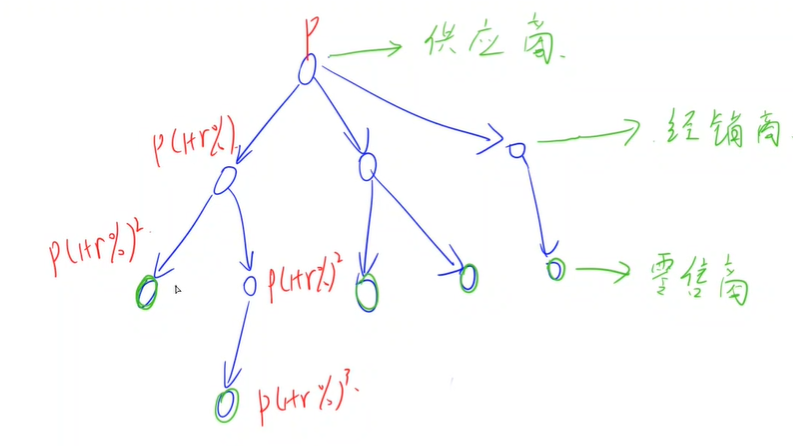 P
供应商
P(1+r%)
经销商
P(1+r%)²
P(1+r%)²
零售商
P(1+r%)³